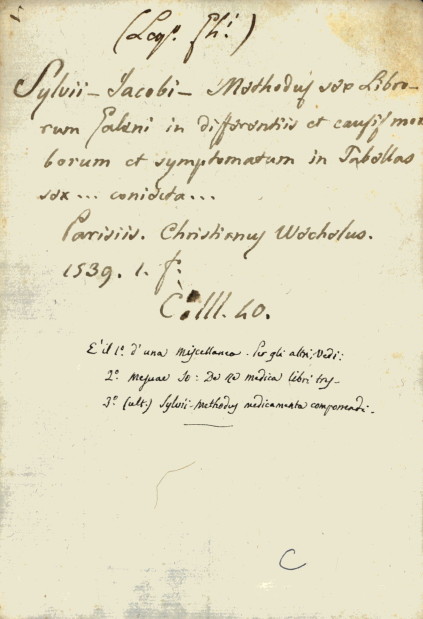 (Leg. Ch.)
Sylvii - Jacobi - Methodus sex Libro-
rum Galeni in differentiis et causis mor
borum et symptomatum in Tabellas
sex ... coniecta ...
Parisiis. Christianus Wechelus.
1539. 1. f.
C. III. 40.
E' il 1º d'una Miscellanea. Per gli altri, Vedi:
2º Mesuae Io: De Re medica libri tres -
3º (ult.) Sylvii - Methodus medicamenta componendi.
C